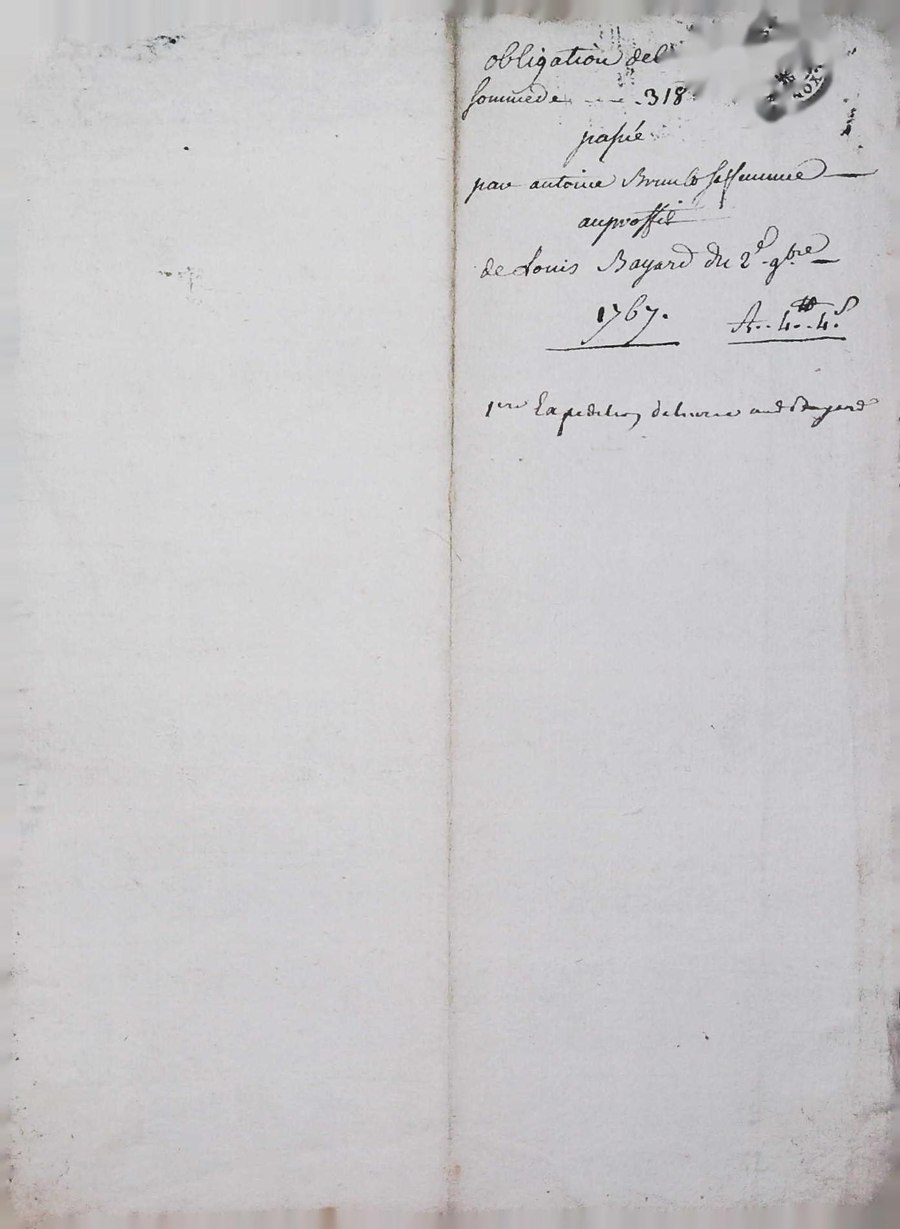 obligation de
somme de - - - 318
passé
par antoine Brun & sa femme
au proffit
de Louis Bayard du 2e 9bre
1767.
A.. 4.. 4.s
1ere Expedition delivrée aud Bayard